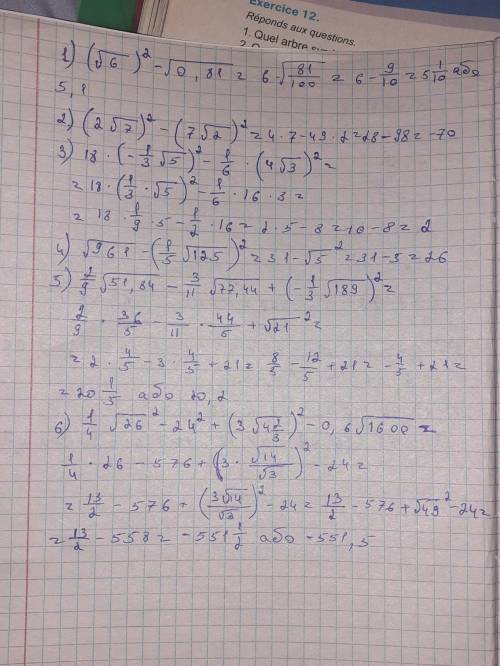 Exercice 12.
Réponds aux questions.
1. Quel arbre
1) (√6)² - √0,81 = 6 - √81/100 = 6 - 9/10 = 5 1/10 або
5,1
2) (2√7)² - (7√2)² = 4·7 - 49·2 = 28 - 98 = -70
3) 18·(-1/3√5)² - 1/6·(4√3)² =
= 18·(1/3·√5)² - 1/6·16·3 =
= 18·1/9·5 - 1/2·16 = 2·5 - 8 = 10 - 8 = 2
4) √961 - (1/5√125)² = 31 - √5² = 31 - 5 = 26
5) 2/9√51,84 - 3/11√77,44 + (-1/3√189)² =
2/9·36/5 - 3/11·44/5 + √21² =
= 2·4/5 - 3·4/5 + 21 = 8/5 - 12/5 + 21 = -4/5 + 21 =
= 20 1/5 або 20,2
6) 1/4√26² - 24² + (3√4 2/3)² - 0,6√1600 =
1/4·26 - 576 + (3·√14/√3)² - 24 =
= 13/2 - 576 + (3√14/√3)² - 24 = 13/2 - 576 + √42² - 24 =
= 13/2 - 558 = -551 1/2 або -551,5